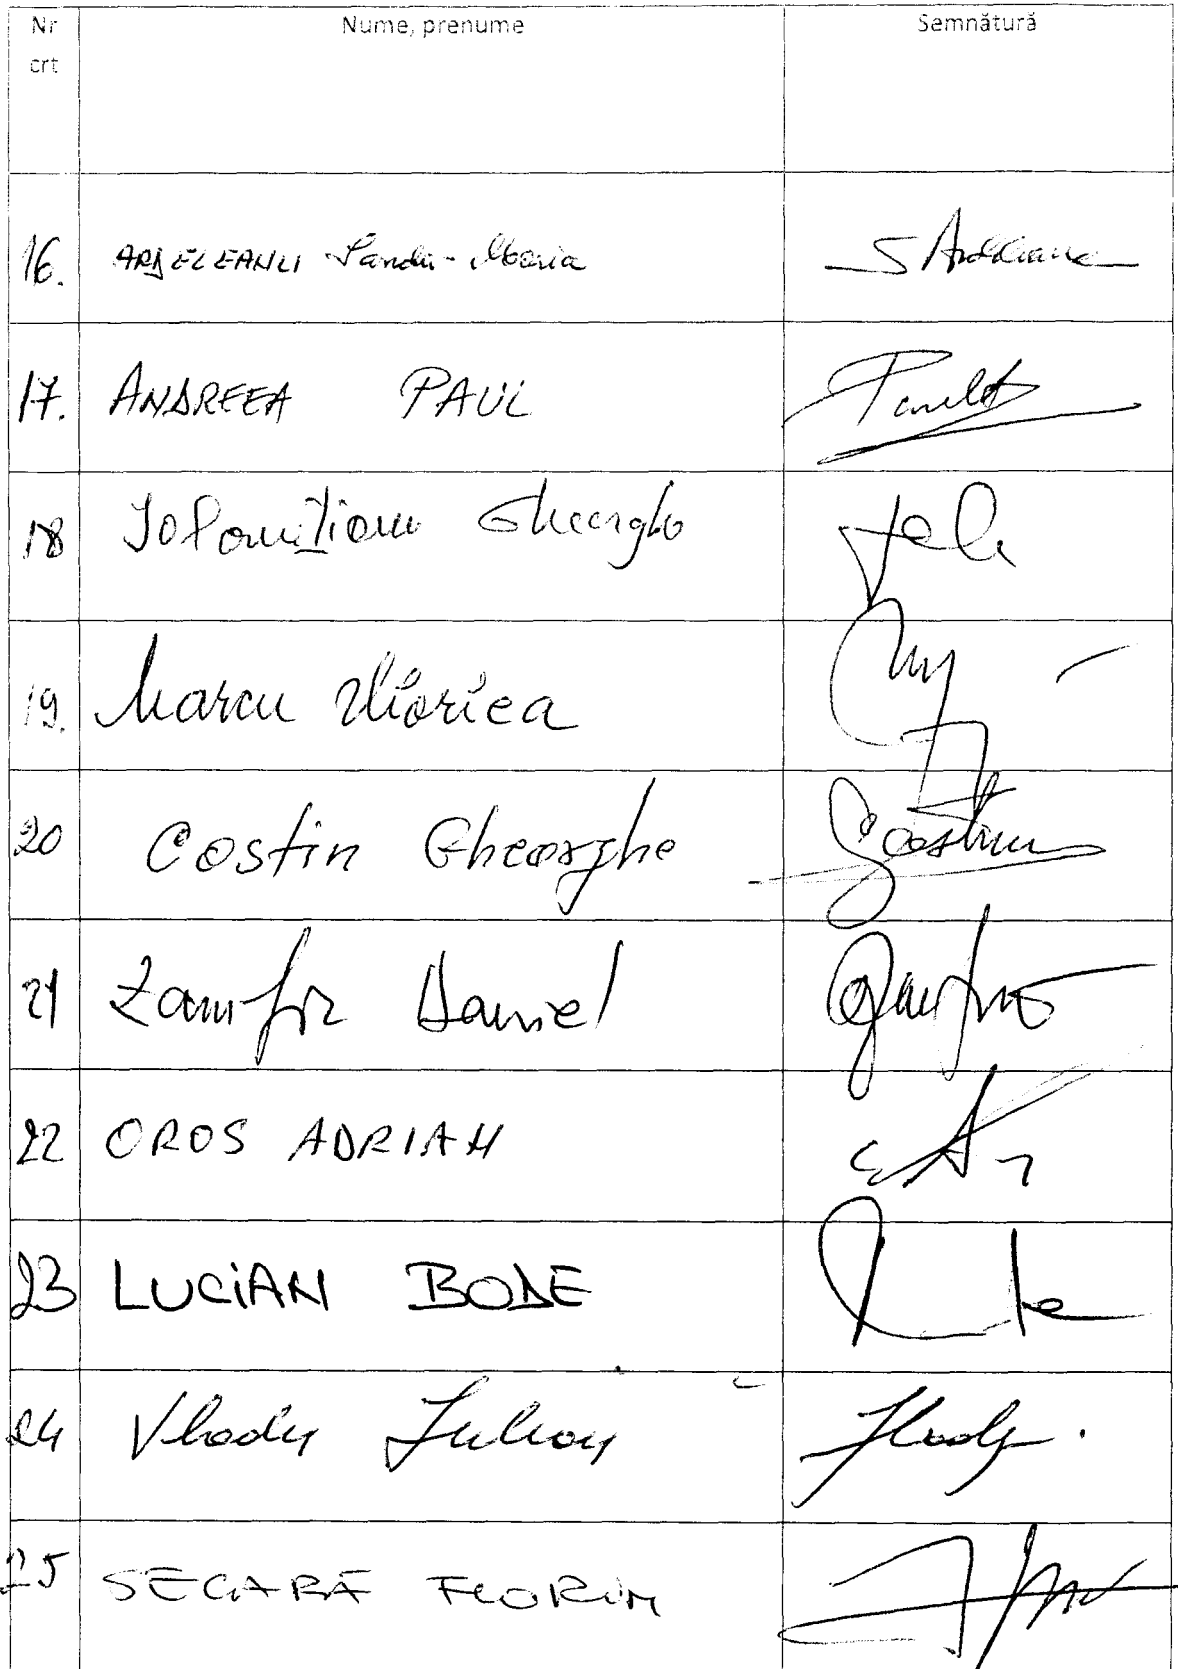 Nr Nume, prenume Semnătură
crt
16. ARDELEANU Sanda-Maria
17. ANDREEA PAUL
18 Ialomițianu Gheorghe
19. Marcu Viorica
20 Costin Gheorghe
21 Zamfir Daniel
22 OROS ADRIAN
23 LUCIAN BODE
24 Vladu Iulian
25 SECARĂ FLORIN